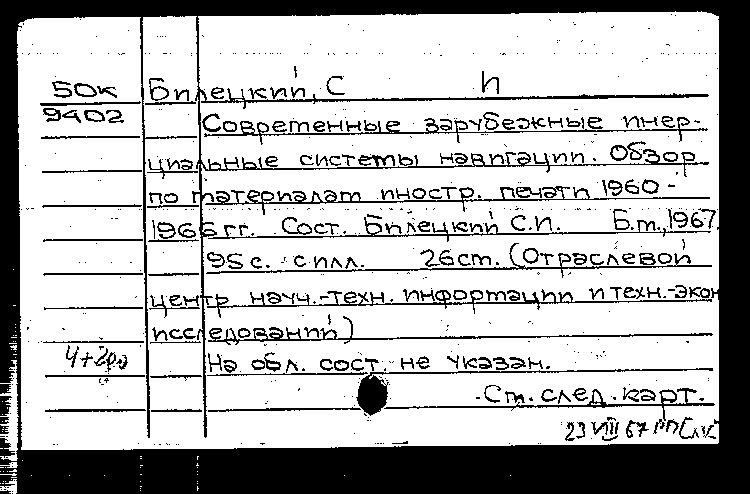 50к Билецкий, С И
9402
Современные зарубежные инер-
циальные системы навигации. Обзор
по материалам иностр. печати 1960-
1966 гг. Сост. Билецкий С.И. Б.м., 1967.
95 с. с илл. 26см. (Отраслевой
центр науч.-техн. информации и техн.-экон
исследований)
4+2рэ На обл. сост. не указан.
См. след. карт.
23 VIII 67